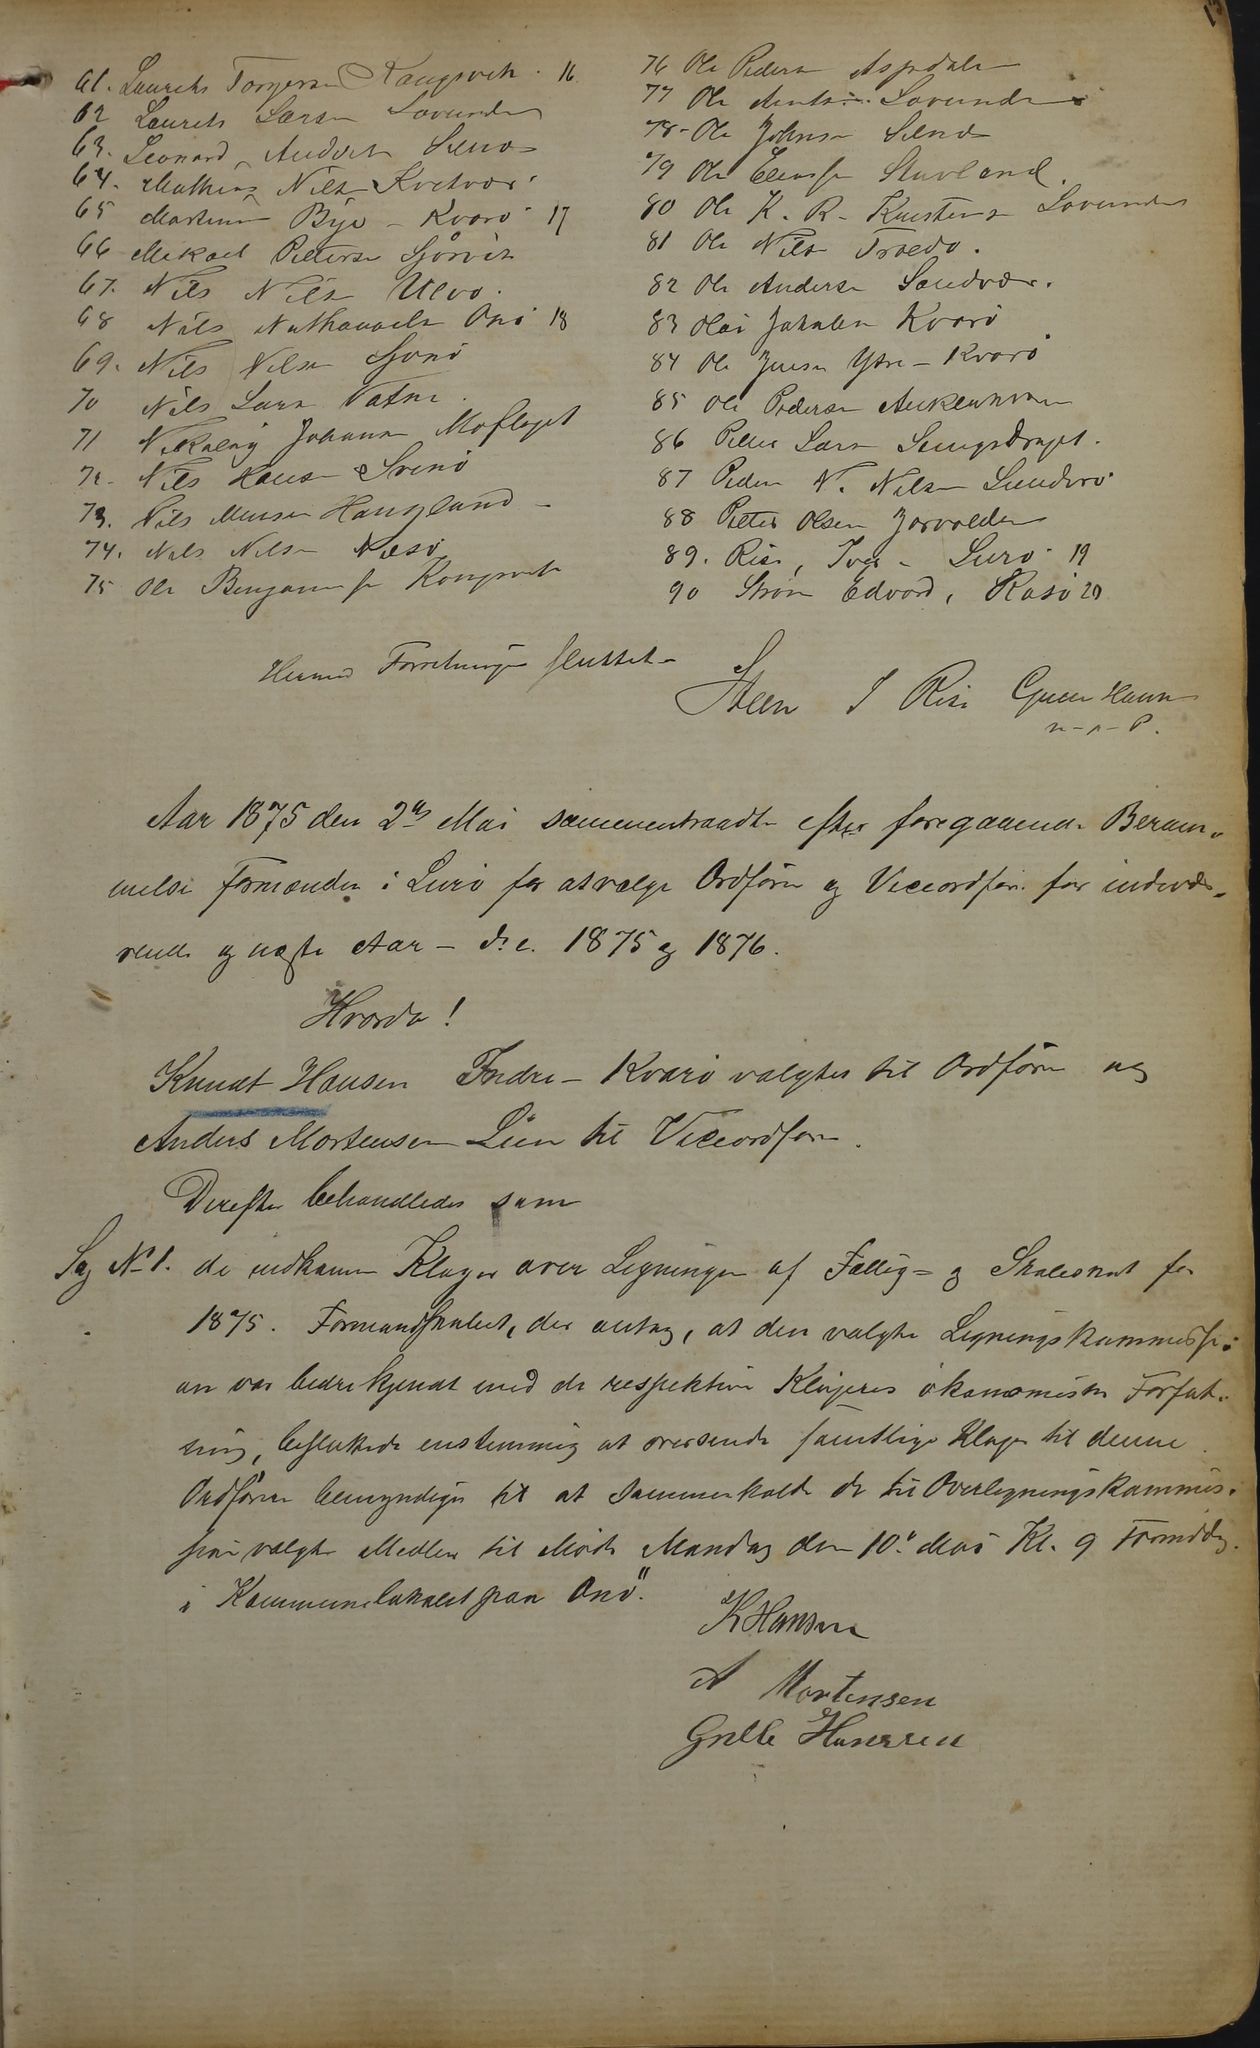 61. Laurits Torgersen Kongsvik. 16
62 Laurits Larsen Lovunden
63. Leonard Anders Selnæs
64. Mathias Nilsen Kvitvær
65 Martinus Bye - Kvarö 17
66 Mikael Pettersen Sjörvik
67. Nils Nilsen Ulvø.
68 Nils Nathanaels Onö 18
69. Nils Nilsen Sjonö
70 Nils Larsen Vatne.
71 Nikolay Johansen Moflaget
72. Nils Hansen Svinö
73. Nils Monsen Haugland
74. Nils Nilsen Næsö
75 Ole Benjaminsen Kongsvik
76 Ole Pedersen Aspdalen
77 Ole Arntsen Lovunden
78. Ole Johnsen Selnæs
79 Ole Eliassen Stuvland.
80 Ole K. R. Karstensen Lovunden
81 Ole Nilsen Trædö.
82 Ole Andersen Sandvær.
83 Olai Jakobsen Kvarö
84 Ole Jensen Ytre - Kvarö
85 Ole Pedersen
86 Petter Larsen
87 Peder N. Nilsen Sundsvö
88 Petter Olsen Jorvolden
89. Risø, Iver - Lurö 19
90 Strøm Edvard, Rasö 20
Hermed Forretningen sluttet
Steen I Risö Grelle Hansen
m - p - P.
Aar 1875 den 2den Mai sammentraadte efter foregaaende Beram-
melse Formænden i Lurö for at vælge Ordförer og Viceordförer for indevæ-
rende og næste Aar - d.e. 1875 og 1876.
Hvorda!
Knudt Hansen Indre - Kvarö valgtes til Ordförer og
Anders Mortensen Lien til Viceordförer.
Derefter behandledes som
Sag No 1. de indkomne Klager over Ligningen af Fattig= og Skoleskat for
1875. Formandskabet, der antog, at den valgte Ligningskommissi-
on var bedre kjendt med de respektive Klageres ökonomiske Forfat-
ning, besluttede enstemmig at oversende samtlige Klager til denne.
Ordföreren bemyndiges til at sammenkalde de til Overligningskommis-
sion valgte Medlem til Möde Mandag den 10de Mai Kl. 9 Formidd.
i Kommunelokalet paa Onö".
K Hansen
A Mortensen
Grelle Hansen